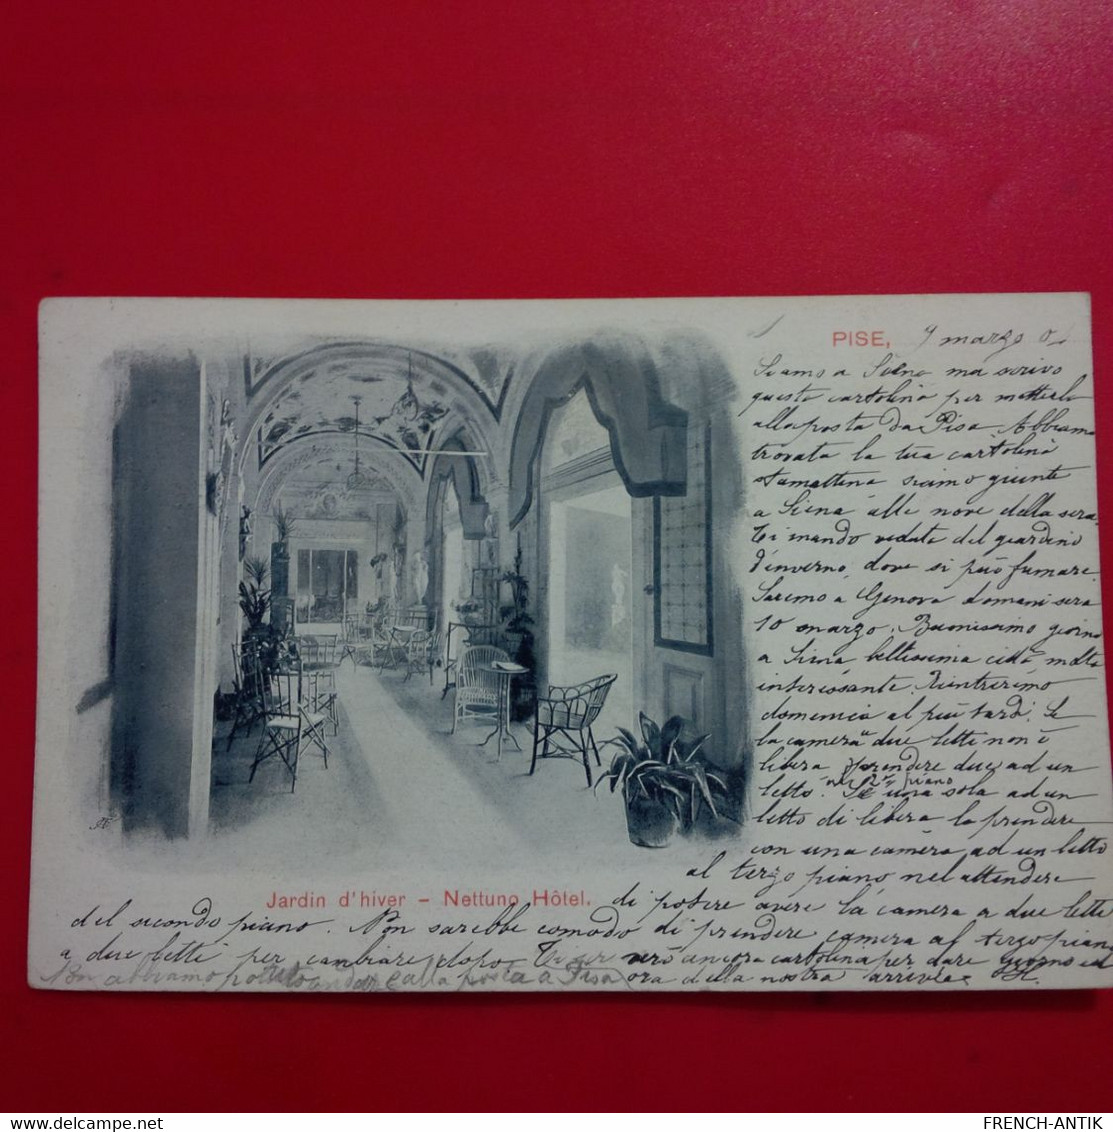 PISE, 9 marzo
Siamo a Siena ma scrivo
questa cartolina per metterla
alla posta da Pisa Abbiamo
trovata la tua cartolina
stamattina siamo giunte
a Siena alle nove della sera.
Ti mando veduta del giardino
d'inverno, dove si può fumare.
Saremo a Genova domani sera
10 marzo. Buonissimo giorno
a Siena bellissima città molto
interessante. Rientreremo
domenica al più tardi. Se
la camera a due letti non è
libera prendere due ad un
letto. nel 2º piano Se una sola ad un
letto di libera la prendere
con una camera ad un letto
al terzo piano nel attendere
Jardin d'hiver - Nettuno Hôtel.
di potere avere la camera a due letti
del secondo piano. Non sarebbe comodo di prendere camera al terzo piano
a due letti per cambiare dopo. Ti scriverò ancora cartolina per dare giorno ed
ora della nostra arrivée
Non abbiamo potuto andare alla posta a Pisa
FRENCH-ANTIK
delcampe.net